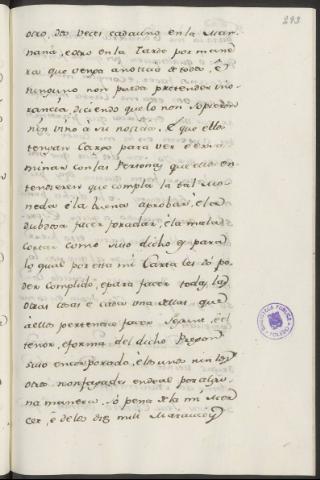 293
otro, dos veces cada uno en la Mañ
nana, e otro en la Tarde por mane
ra que venga a noticia de todos, è
ninguno non pueda pretender ino
rancia, diciendo que lo non sopieron
nin vino à su noticia. È que ellos
tengan Cargo para ver è exa
minar con las Personas que ellos en
tendieren que compla la tal mo
neda è la buena aprobar, è la
dubdosa facer foradar, è la mala
cortar como suso dicho es para
lo qual por esta mi Carta les dó po
der complido, è para facer todas las
otras cosas è cada una dellas que
à ellos pertenecen facer segund el
tenor, è forma del dicho Pregon
suso encorporado, è los unos nin los
otros non fagades ende al por algu
na manera, só pena de la mi Mer
ced, è de los diez mill Maravedis
BIBLIOTECA PUBLICA
TOLEDO